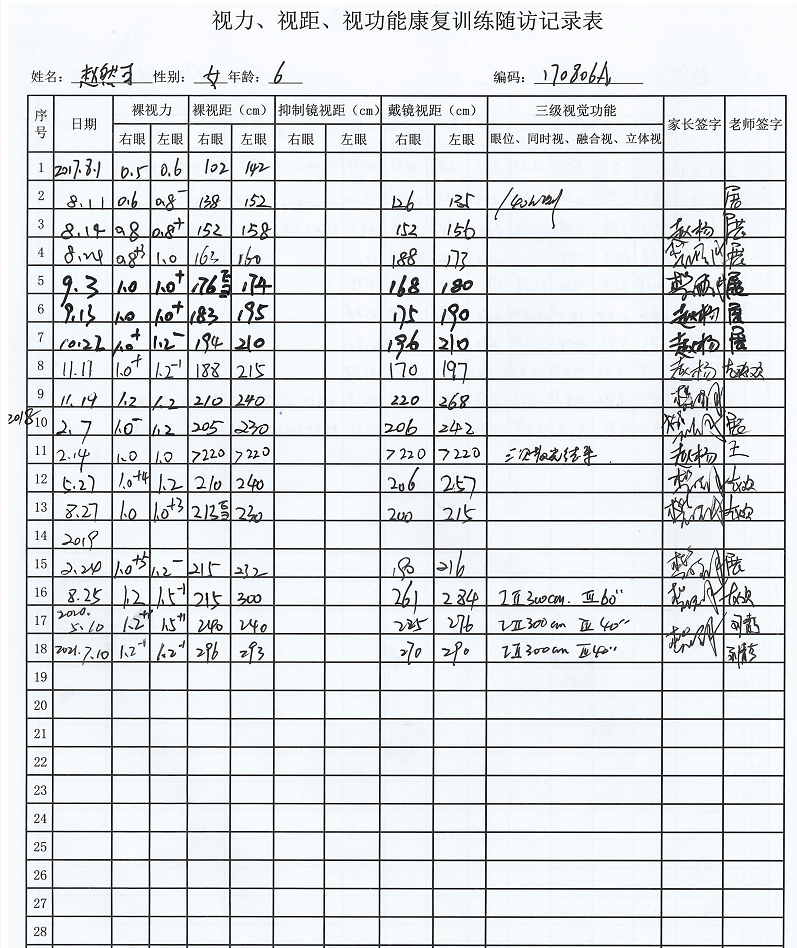 视力、视距、视功能康复训练随访记录表
姓名： 性别：女 年龄：6 编码：170806A
序号 日期 裸视力 裸视距（cm） 抑制镜视距（cm） 戴镜视距（cm） 三级视觉功能 家长签字 老师签字
右眼 左眼 右眼 左眼 右眼 左眼 右眼 左眼 眼位、同时视、融合视、立体视
1 2017.8.1 0.5 0.6 102 142
2 8.11 0.6 0.8⁻ 138 152 126 135 展
3 8.14 0.8 0.8⁺ 152 158 152 156 赵杨 展
4 8.24 0.8⁺³ 1.0 163 160 188 173 展
5 9.3 1.0 1.0⁺ 176 174 168 180 展
6 9.13 1.0 1.0⁺ 183 195 175 190 赵杨 展
7 10.22 1.0⁺ 1.2⁻ 194 210 196 210 赵杨 展
8 11.11 1.0⁺ 1.2⁻¹ 188 215 170 197 赵杨
9 11.19 1.2 1.2 210 240 220 268
2018 10 2.7 1.0⁻ 1.2 205 230 206 242 展
11 2.14 1.0 1.0 >220 >220 >220 >220 赵杨 王
12 5.27 1.0⁺⁴ 1.2 210 240 206 257
13 8.27 1.0 1.0⁺³ 213 230 200 215
14 2019
15 2.24 1.0⁺⁵ 1.2⁻ 215 232 190 216 展
16 8.25 1.2 1.5⁻¹ 215 300 261 284 I II 300cm. III 60″
17 2020. 5.10 1.2⁺¹ 1.5⁺¹ 240 240 225 276 I II 300cm III 40″
18 2021.7.10 1.2⁻¹ 1.2⁻¹ 296 293 270 290 I II 300cm III 40″
19
20
21
22
23
24
25
26
27
28